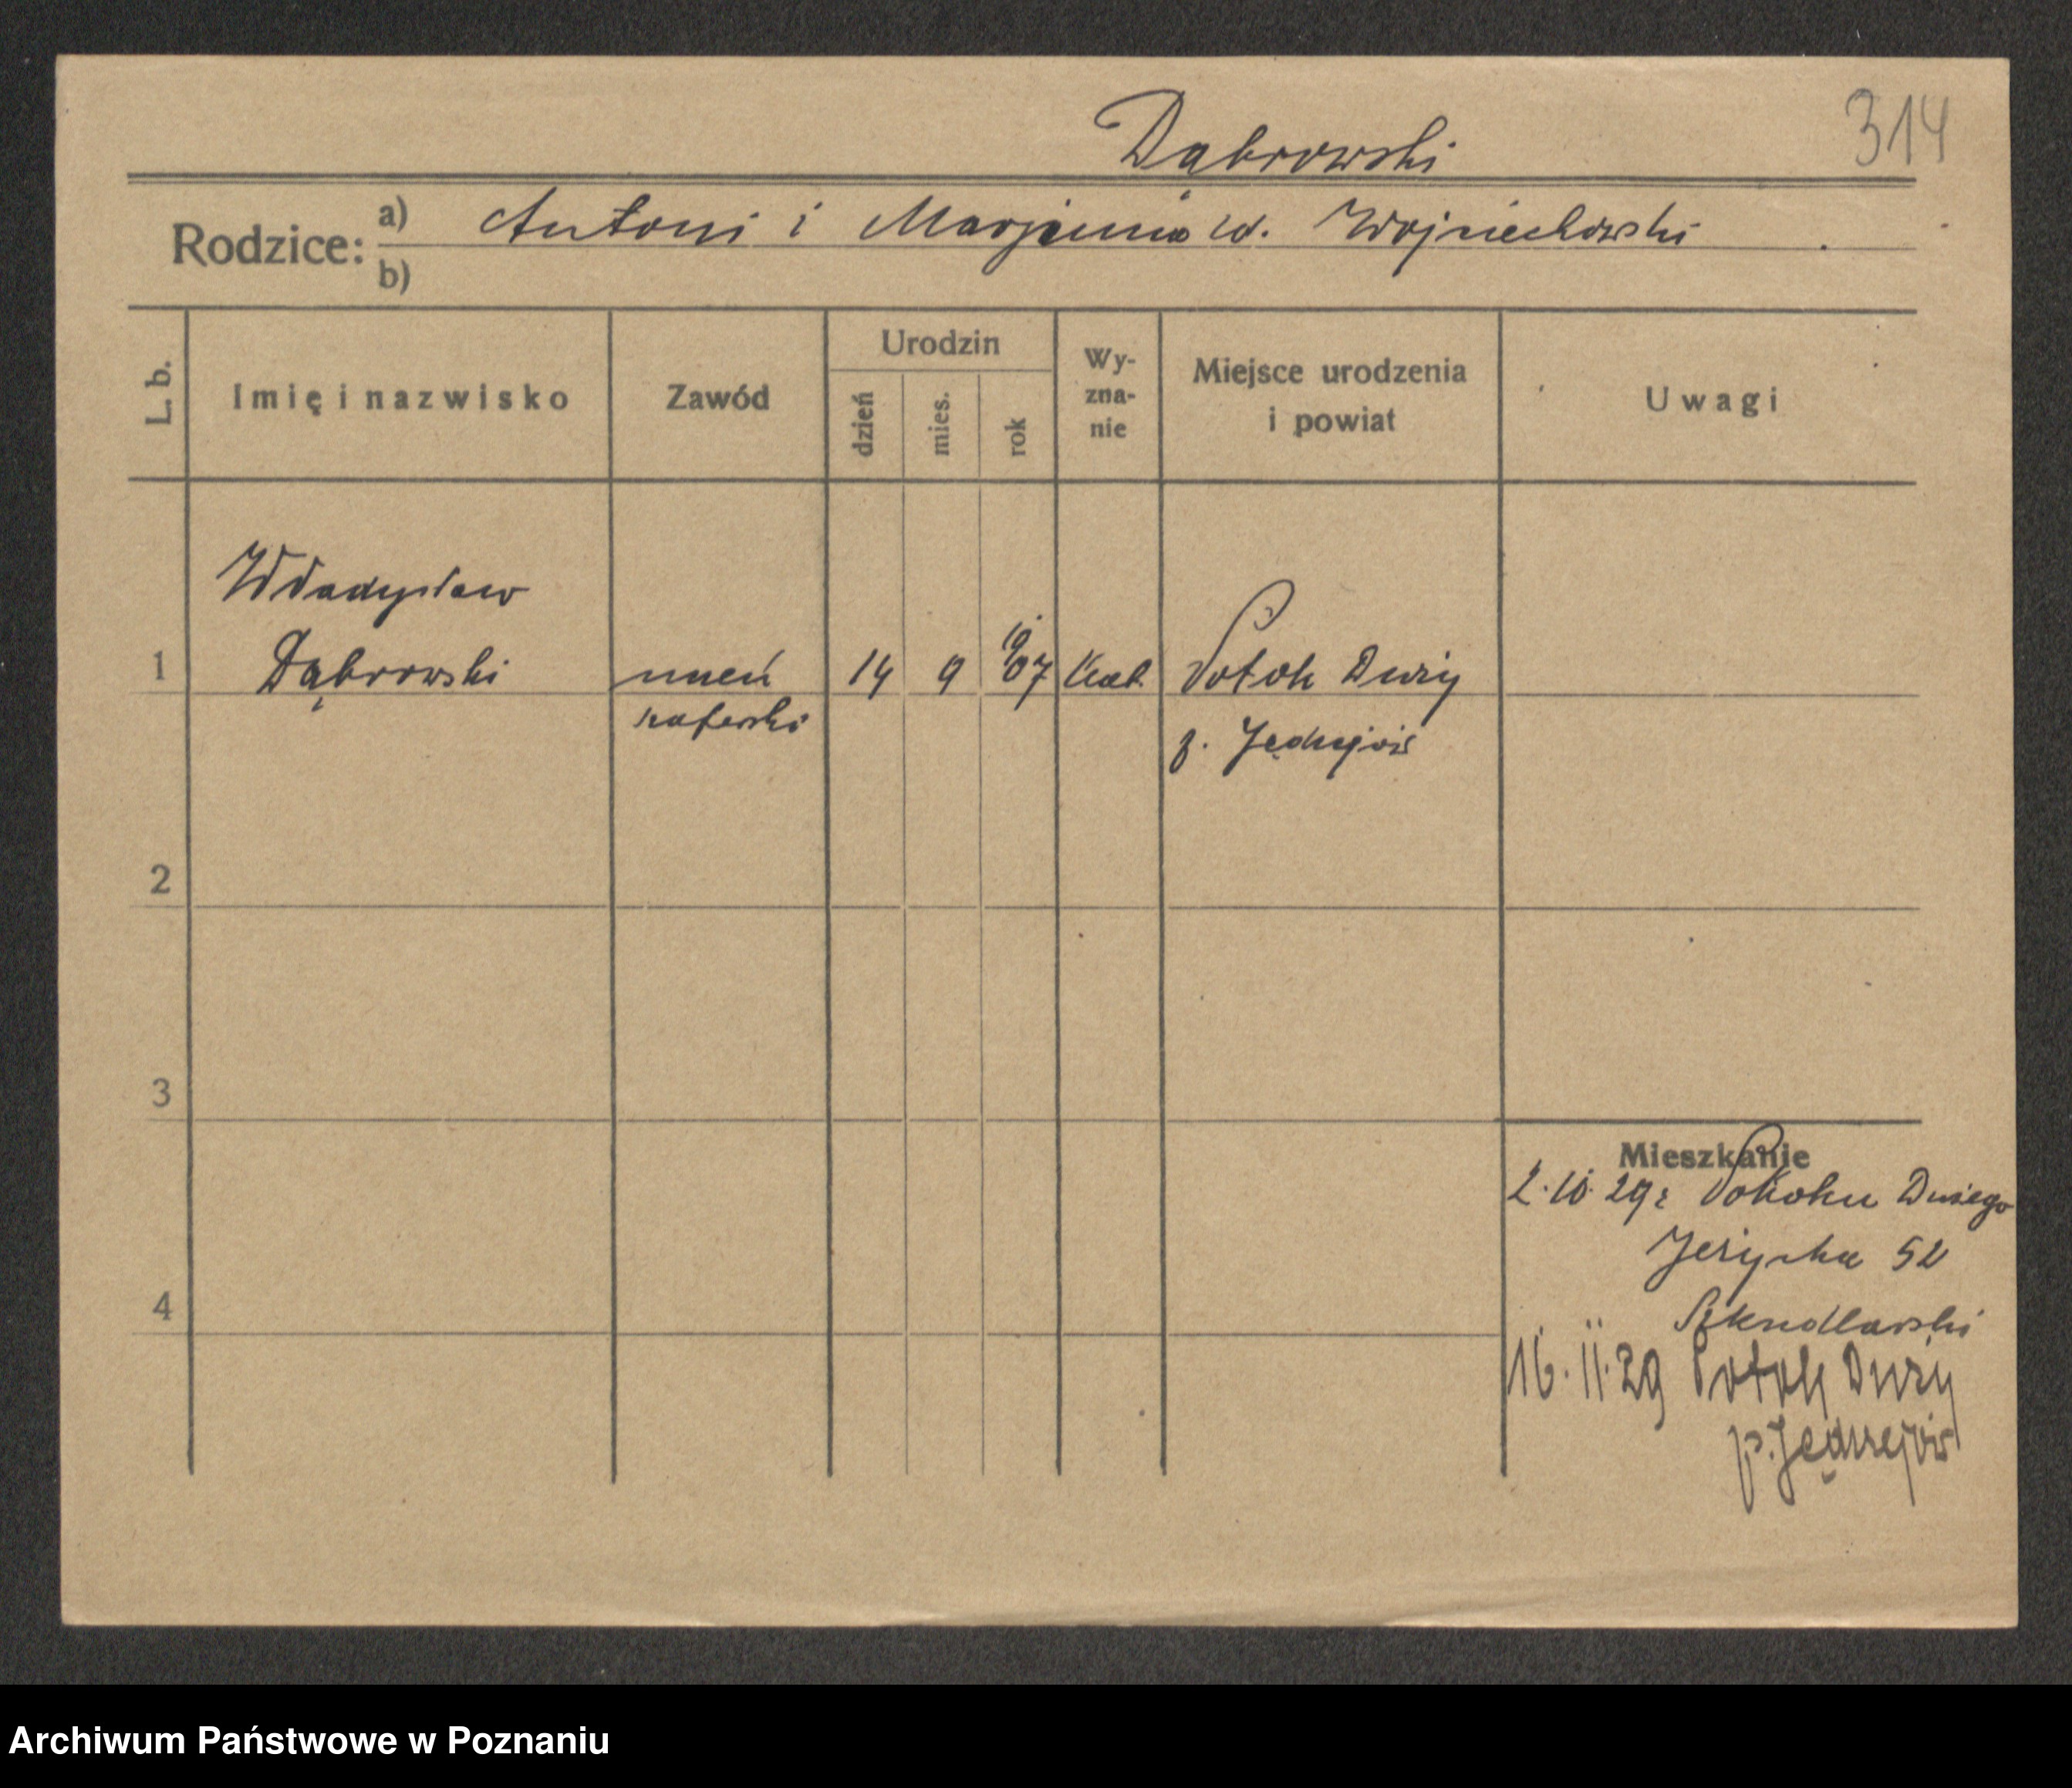 Dąbrowski
314
Rodzice: a) Antoni i Marjanna d. Wojciechowski
b)
L. b.
Imię i nazwisko
Zawód
Urodzin
dzień
mies.
rok
Wy-
zna-
nie
Miejsce urodzenia
i powiat
Uwagi
Władysław
1 Dąbrowski uczeń 14 9 1907 Kat. Potok Duży
szoferski p. Jędrzejów
2
3
4
Mieszkanie
2.10.29 z Potoku Dużego
Jeżycka 52
Szkudlarski
16.11.29 Potok Duży
p. Jędrzejów
Archiwum Państwowe w Poznaniu